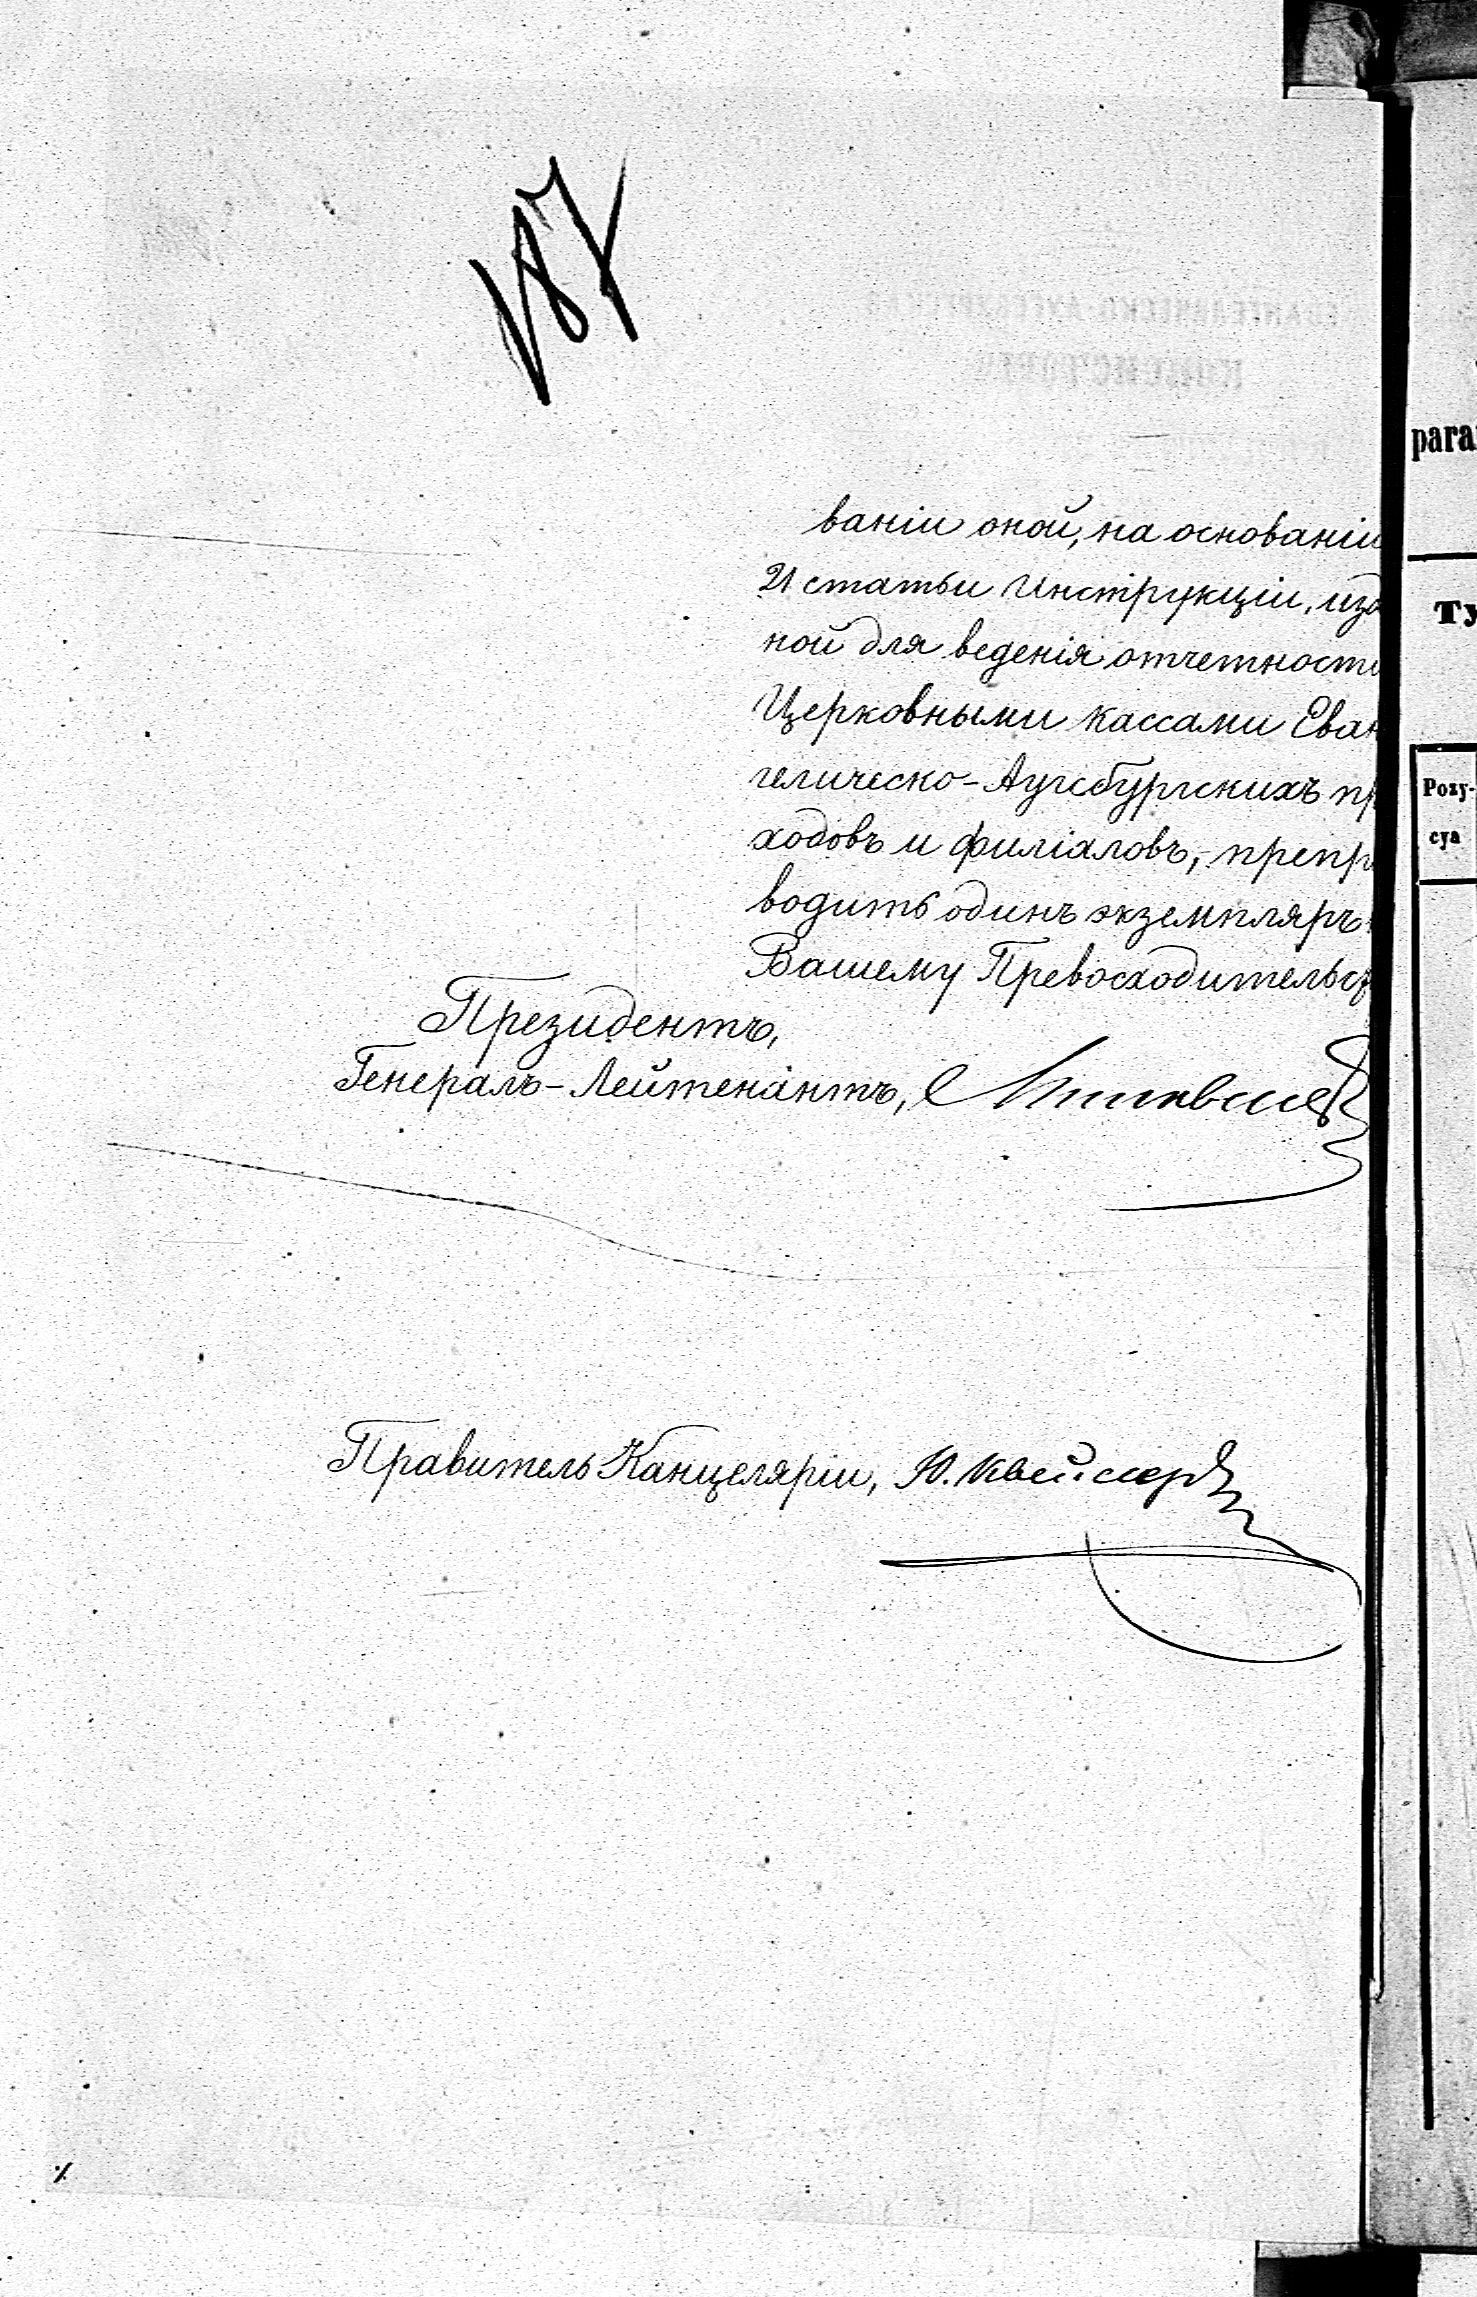 187
ваніи оной, на основаніи
21 статьи Инструкціи, изд
ной для веденія отчетности
Церковными кассами Еван
гелическо-Аугсбургскихъ пр
ходовъ и филіаловъ, - препр
водить одинъ экземпляръ
Вашему Превосходительст
Президентъ,
Генералъ-Лейтенантъ,
Правитель Канцеляріи, Ю.
para
Ту
Pozy-
cya